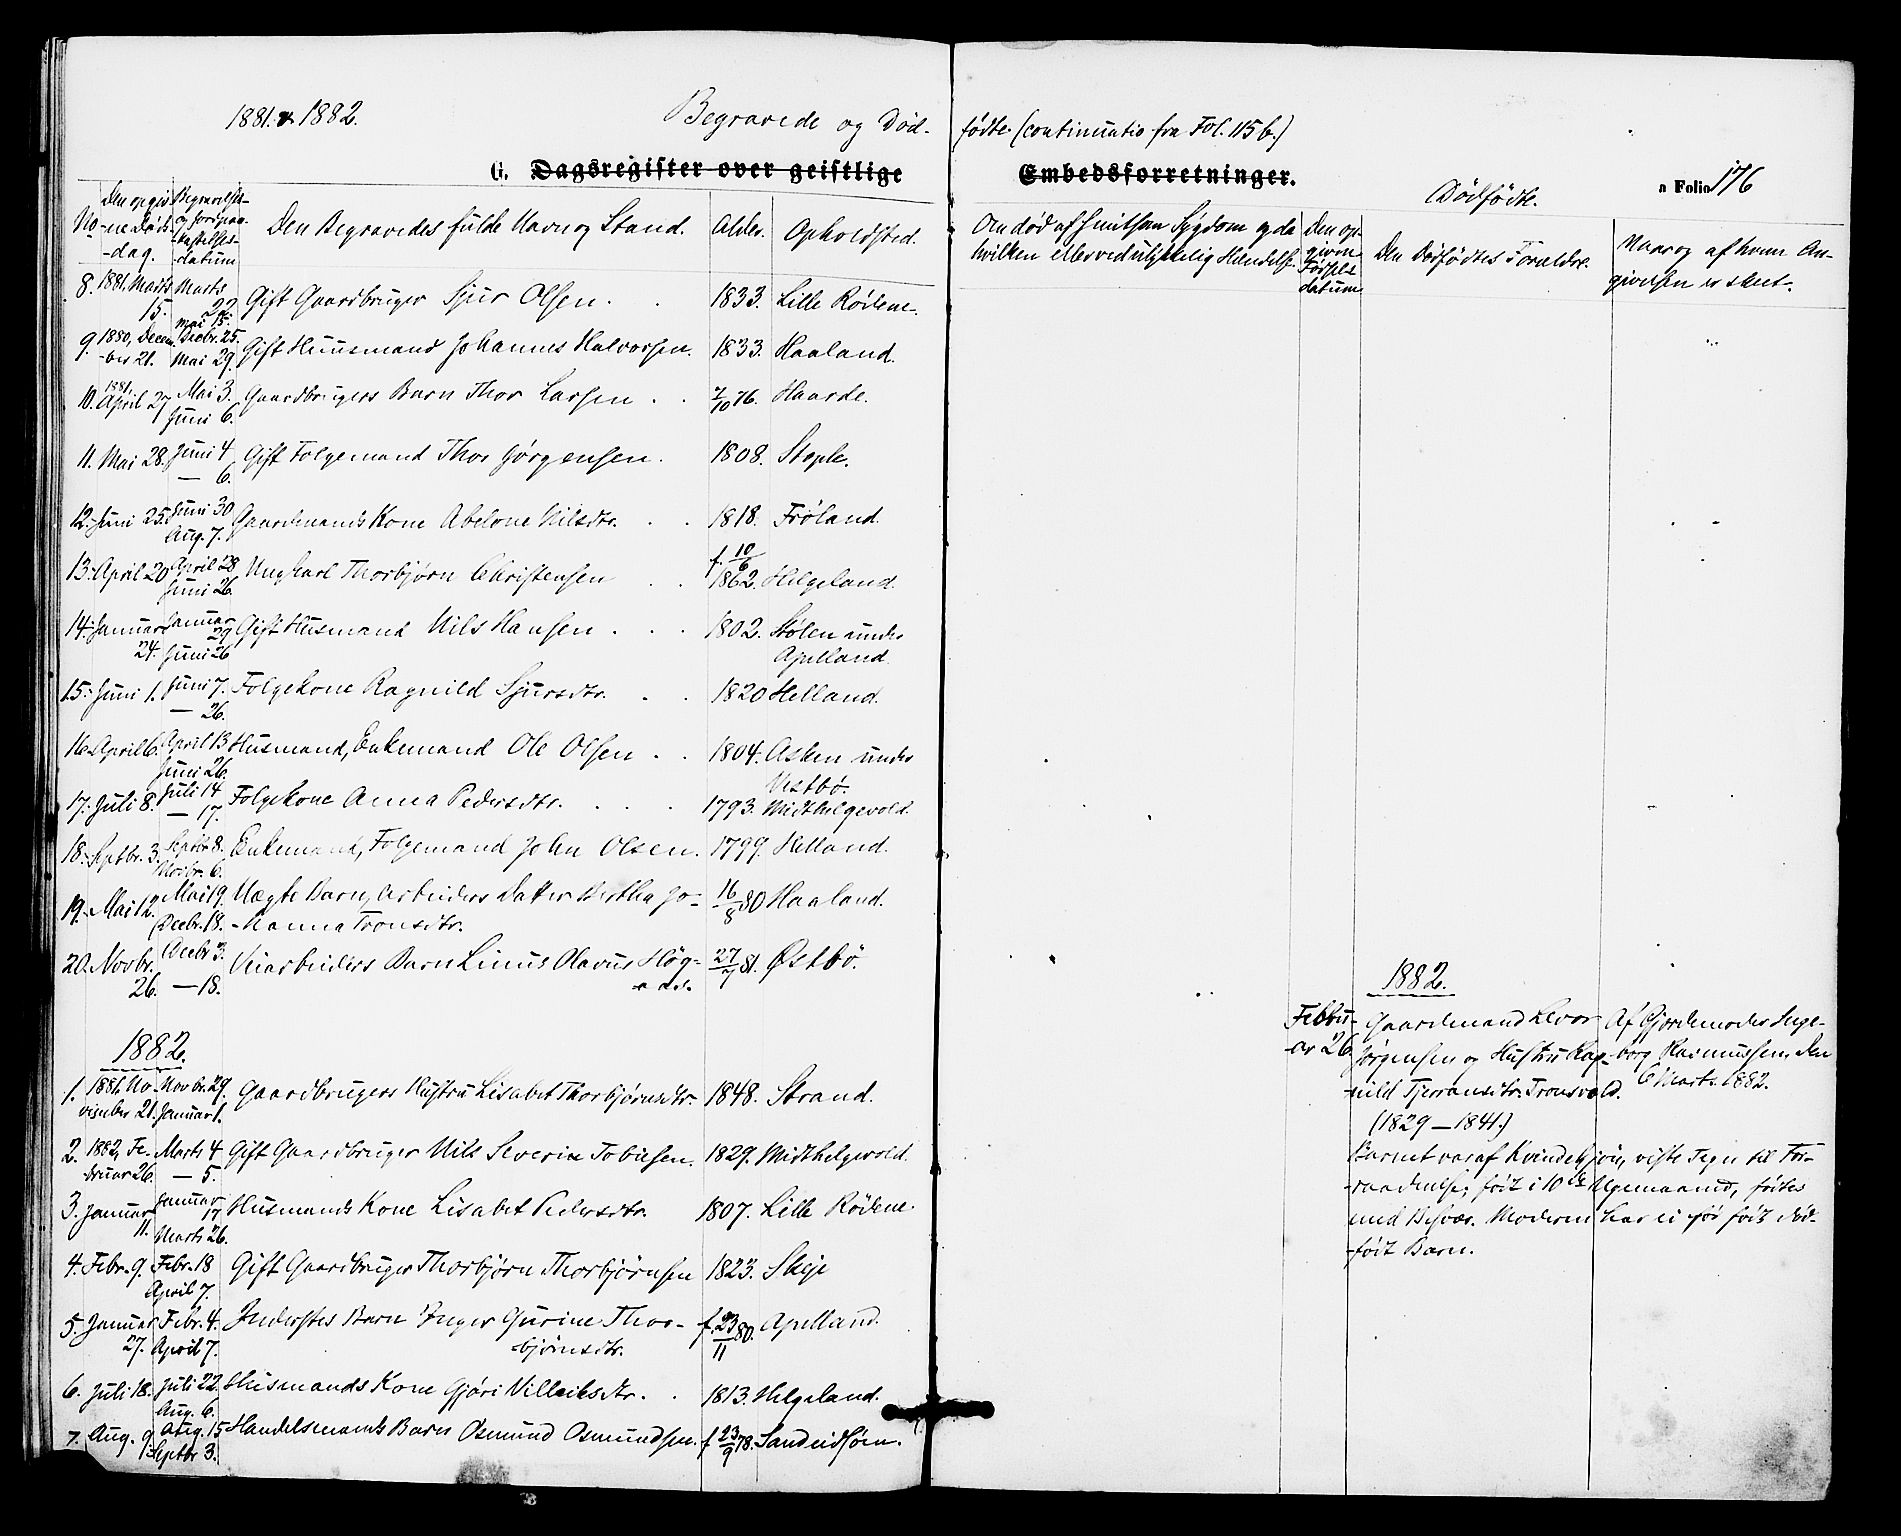 1881 & 1882.
Begravede og Død-
G. Dagsregister over geistlige
No
Den opgiv-
-ne Døds-
-dag.
Begravelses-
og Jordpaa-
-kastelses-
-datum
Den Begravedes fulde Navn og Stand.
Alder.
Opholdsted.
8. 1881. Marts 15. Marts 22. Mai 15. Gift Gaardbruger Sjur Olsen. 1833. Lille Rødene.
9. 1880, Decem-
-ber 21. Decbr. 25. Mai 29. Gift Huusmand Johannes Halvorsen. 1833. Haaland.
10. 1881, April 27 Mai 3. Juni 6. Gaardbrugers Barn Thor Larsen 7/10 76. Haarde.
11. Mai 28. Juni 4 — 6. Gift Folgemand Thor Jørgensen. 1808. Stople.
12. Juni 25. Juni 30 Aug. 7. Gaardmands Kone Abelone Nilsdtr. 1818. Frøland.
13. April 20 April 28 Juni 26. Ungkarl Thorbjørn Christensen f. 10/6 1862. Helgeland.
14. Januar 24. Januar 29 Juni 26 Gift Husmand Nils Hansen. 1802. Stølen under
Apelland
15. Juni 1. Juni 7. — 26. Folgekone Ragnild Sjursdtr. 1820 Helland.
16. April 6. April 13 Juni 26. Husmand, Enkemand Ole Olsen 1804. Asken under
Vestbø.
17. Juli 8. Juli 14 — 17. Folgekone Anna Pedersdtr. 1793. Midthelgevold.
18. Septbr. 3. Septbr 8. Novbr. 6. Enkemand, Folgemand John Olsen. 1799. Helland.
19. Mai 12. Mai 19. Decbr. 18. Uægte Barn, Arbeiders Datter Bertha Jo-
-hanna Tronsdtr. 16/8 80 Haaland.
20. Novbr. 26. Decbr 3. — 18. Veiarbeiders Barn Linus Olavus Høg- 27/7 81. Østbø.
1882.
1. 1881, No-
vember 21. Novbr. 29. Januar 1. Gaardbrugers Hustru Lisabet Thorbjørnsdtr. 1848. Strand.
2. 1882, Fe-
bruar 26. Marts 4 — 5. Gift Gaardbruger Nils Severin Tobiesen. 1829. Midthelgevold.
3. Januar 11. Januar 17 Marts 26. Husmands Kone Lisabet Pedersdtr. 1807. Lille Rødene.
4. Febr. 9. Febr. 18 April 7. Gift Gaardbruger Thorbjørn Thorbjørnsen 1823. Skeje
5. Januar 27. Febr. 4. April 7. Inderstes Barn Inger Gurine Thor-
bjørnsdtr. f. 23/11 80. Apelland.
6. Juli 18. Juli 22 Aug. 6. Husmands Kone Gjøri Villeiksdtr. 1813. Helgeland.
7. Aug. 9 Aug. 15 Septbr 3. Handelsmands Barn Osmund Osmundsen. f. 23/9 78. Sandeidsøen.
fødte. (continuatio fra Fol. 115 b.)
Embedsforretninger.
a Folio 176
Dødfødte.
Om død af smitsom Sygdom og da
hvilken eller ved ulykkelig Hændelse.
Den op-
givne
Fødsels-
datum.
Den Dødfødtes Forældre.
Naar og af hvem An-
givelsen er skeet.
1882.
Febru-
ar 26.
Gaardmand Levor
Jørgensen og Hustru Rag-
nild Tjerransdtr. Tronsvold.
(1829 — 1841.)
Af Gjordemoder Inge-
borg Rasmussen, den
6 Marts 1882.
Barnet var af Kvindekjøn, viste Tegn til For-
raadnelse; født i 10de Ugemaaned, fødtes
med Besvær. Moderen har ei før født død-
født Barn.